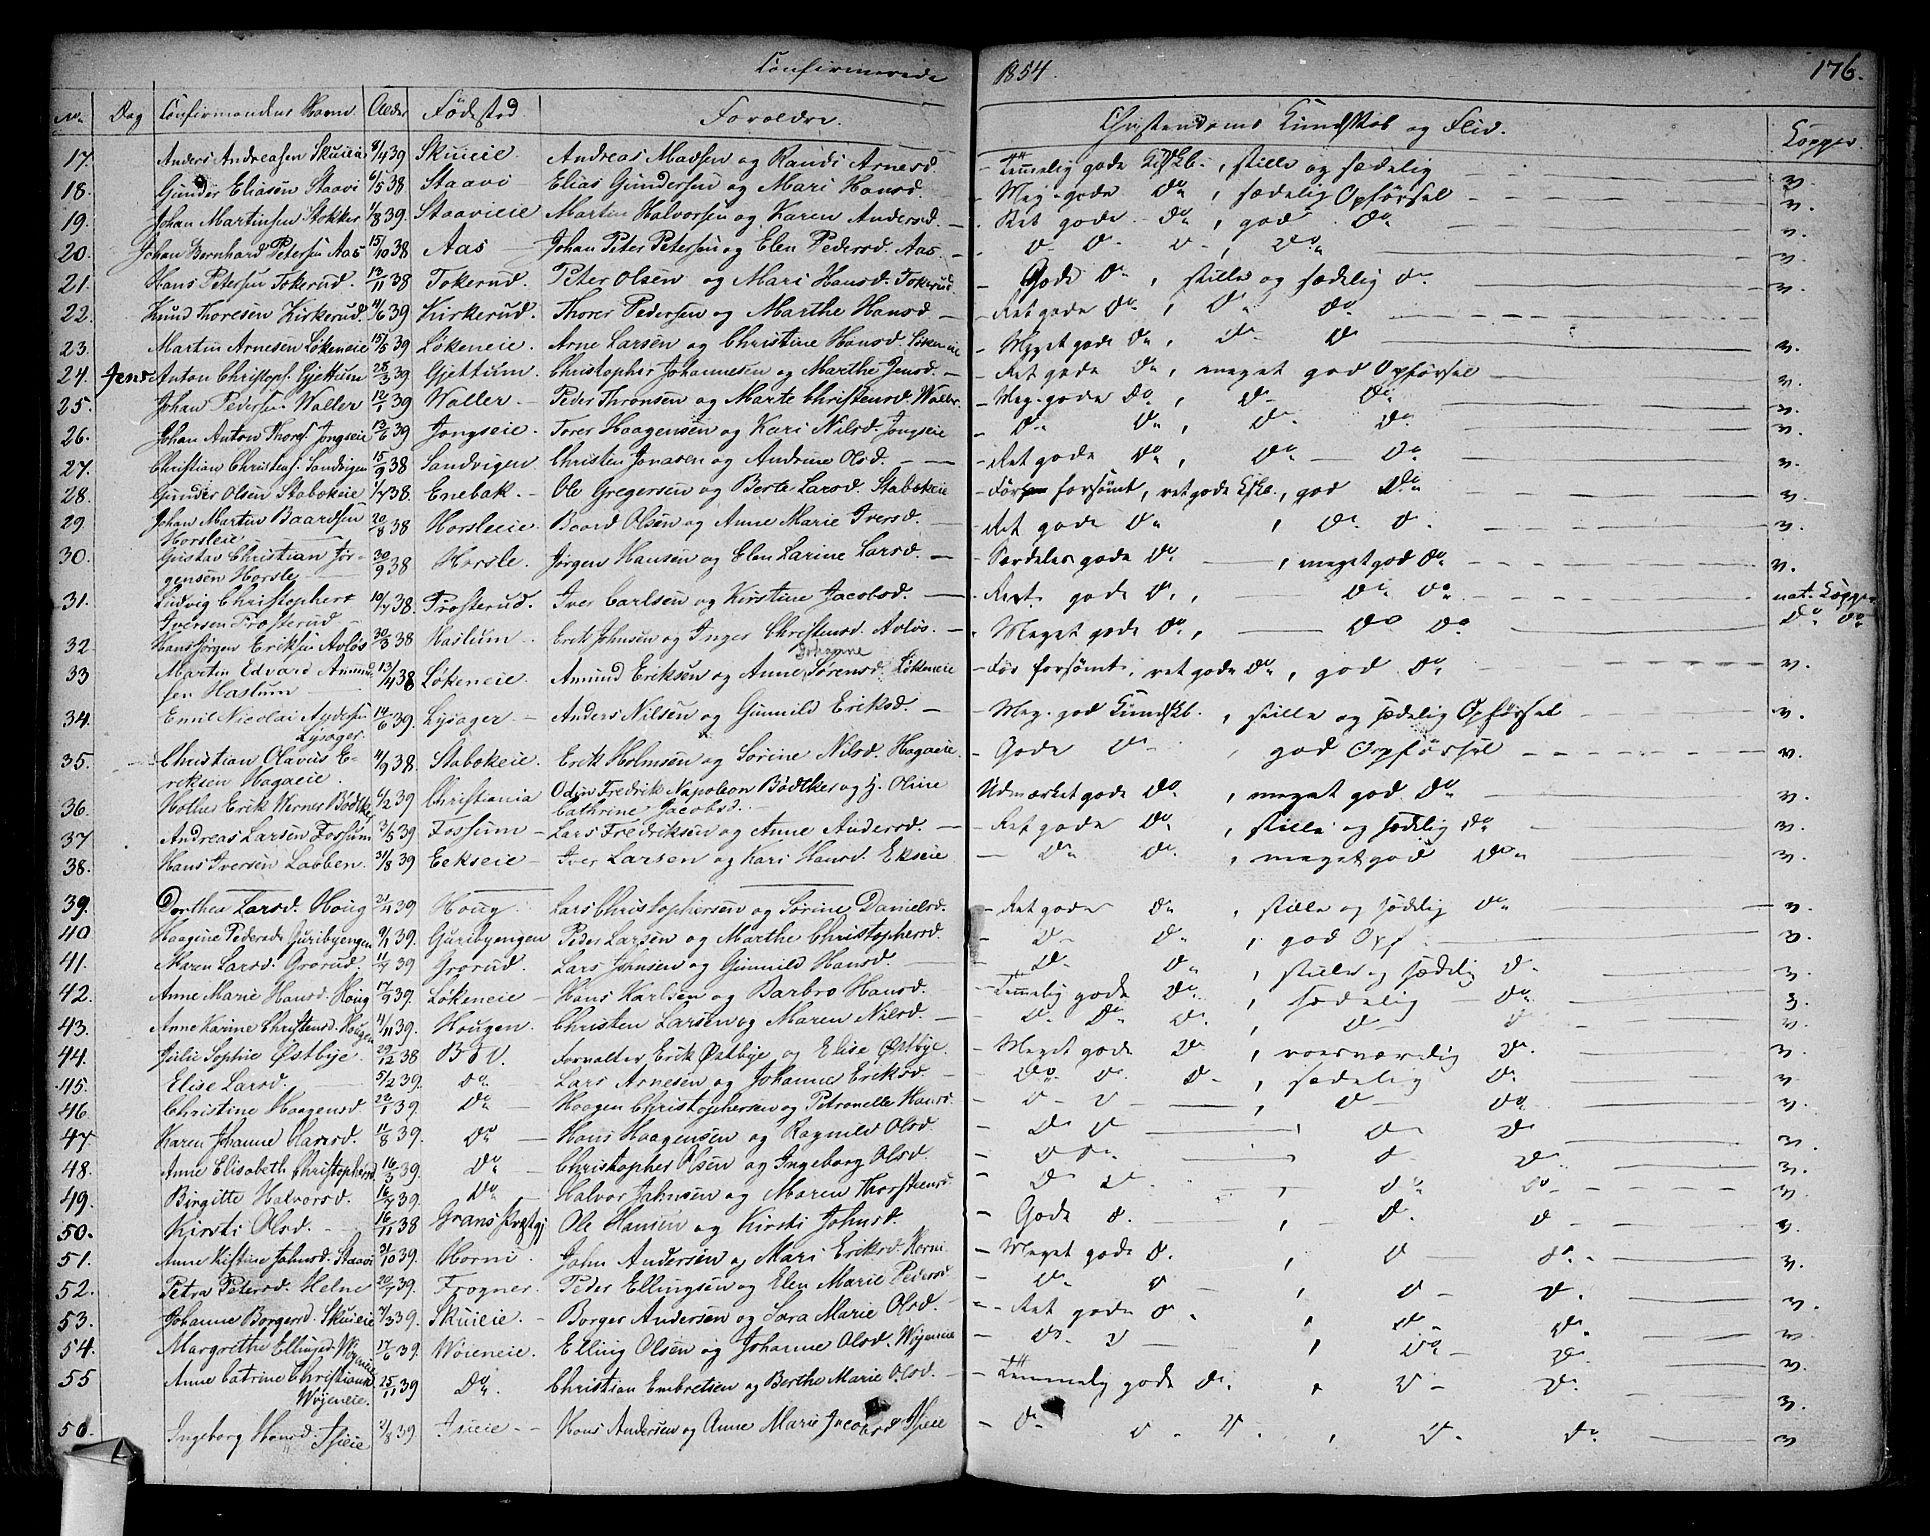 Confirmerede 1854. 176.
No. Dag Confirmandens Navn. Alder Fødested Forældre. Christendoms Kundskab og Flid. Kopper
17. Anders Andreasen Skuieie 8/4 39 Skuieie. Andreas Madsen og Randi Arnesd. - Temmelig gode Kdskb., stille og sædelig v.
18. Gunder Eliasen Staavi 6/5 38 Staavi - Elias Gundersen og Mari Hansd. - Meg. gode Do, sædelig Opførsel v.
19. Johan Martinsen Stokker 1/8 39 Staavieie Martin Halvorsen og Karen Andersd. - Ret gode Do, god Do v.
20. Johan Bernhard Petersen Aas 15/10 38 Aas - Johan Peter Petersen og Elen Pedersd. Aas. - D. D. D., Do v.
21. Hans Petersen Tokerud. 13/11 38 Tokerud. Peter Olsen og Mari Hansd. Tokerud. - Gode Do, stille og sædelig D. v.
22. Knud Thoresen Kirkerud. 11/6 39 Kirkerud. Thorer Pedersen og Marthe Hansd. - Ret gode Do, D. Do
23. Martin Arnesen Løkeneie 15/5 39 Løkeneie. Arne Larsen og Christine Hansd. Løkeneie - Meget gode Do, D. D v.
24. Jens Anton Christophs. Gjettum 25/3 39 Gjettum. Christopher Johannesen og Marthe Jensd. - Ret gode Do, meget god Opførsel v.
25. Johan Pedersen Waller 12/1 39 Waller - Peder Thronsen og Marte Christensd. Waller. - Meg. gode Do, D. Do v.
26. Johan Anton Thores. Jongseie 13/6 39 Jongseie. Torer Haagensen og Kari Nilsd. Jongseie - Do Do, D. Do. v.
27. Christian Christens. Sandvigen 15/9 38 Sandvigen. Christen Jonasen og Andrine Olsd. - Ret gode Do, Do - Do v.
28. Gunder Olsen Stabekeie 1/7 38. Enebak. - Ole Gregersen og Berte Larsd. Stabekeie - Før forsømt, ret gode Kskb., god Do v.
29 Johan Martin Baardsen Horsleie 20/8 38 Horsleie. Baard Olsen og Anne Marie Iversd. - Ret gode Do, D. D. v.
30. Gustav Christian Jørgensen Horsle 30/9 38 Horsle. Jørgen Hansen og Elen Larine Larsd. - Særdeles gode Do, meget god Do v.
31. Ludvig Christopher Iversen Prosterud - 10/7 38. Prosterud. Iver Carlsen og Kirstine Jacobsd. - Ret gode Do, Do Do nat. Kopper
32 Hans Jørgen Eriksen Avløs 30/3 38 Haslum. Erik Johnsen og Inger Christensd. Avløs. - Meget gode Do, Do Do Do Do
33 Martin Edvard Amundsen Haslum 13/4 38 Løkeneie. Amund Eriksen og Anne Johanne Sørensd. Løkeneie - Før forsømt, ret gode Do, god Do v.
34. Emil Nicolai Andersen Lysager. 14/6 39. Lysager - Anders Nilsen og Gunnild Eriksd. - Meg. god Kundskb., stille og sædelig Opførsel v.
35. Christian Olavus Eriksen Hagaeie. 11/9 38. Stabekeie. Erik Holmsen og Sørine Nilsd. Hagaeie - Gode Do, god Opførsel v.
36. Hother Erik Werner Bødtker 6/2 39 Christiania Odin Fredrik Napoleon Bødtker og H. Oline Cathrine Jacobsd. - Udmærket gode Do, meget god Do v.
37 Andreas Larsen Fossum 3/5 39 Fossum - Lars Fredriksen og Anne Andersd. - Ret gode, stille og sædelig Do v.
38. Hans Iversen Løvben. 31/8 39 Eekseie - Iver Larsen og Kari Hansd. Ekseie - Do Do, meget god Do v.
39. Dorthea Larsd. Houg 21/4 39 Houg. Lars Christophersen og Sørine Danielsd. - Ret gode Do, stille og sædelig Do v.
40 Haagine Pedersd. Guribyengen 9/1 39. Guribyengen Peder Larsen og Marthe Christophersd. - D - Do, god Opf. v.
41. Maren Larsd. Grorud. 11/7 39 Grorud. Lars Johnsen og Gunnild Hansd. - D. Do, stille og sædelig D. v.
42. Anne Marie Hansd. Houg 17/9 39. Løkeneie - Hans Karlsen og Barbro Hansd. - Temmelig gode Do, sædelig Do v.
43. Anne Karine Christensd. Hougen 11/11 39. Hougen. Christen Larsen og Maren Nilsd. - D. Do D., D - D v.
44. Julie Sophie Østbye. 29/12 38 Bøe. Forvalter Erik Østbye og Elise Østbye. - Meget gode Do, roesværdig D. v.
45. Elise Larsd. 5/2 39. Do Lars Arnesen og Johanne Eriksd. - Do D. D., sædelig D. v.
46 Christine Haagensd. 22/1 39. Do - Haagen Christophersen og Petronelle Hansd. - D D -, D - Do v.
47 Karen Johanne Hansd. 11/8 39. Do - Hans Haagensen og Ragnild Olsd. - D. D -, D - D v.
48. Anne Elisabeth Christophersd. 16/3 39. Do - Christopher Olsen og Ingeborg Olsd. - D D. -, D - Do v.
49. Birgitte Halvorsd. 16/7 39. Do - Halvor Jahnsen og Maren Thorstensd. - D D. -, Do Do v.
50. Kirsti Olsd. 16/11 38 Grans Præstgj. Ole Hansen og Kirsti Johnsd. - Gode D. -, D. D - v.
51. Anne Kistine Johnsd. Staavi 31/10 39. Horni - John Andersen og Mari Eriksd. Horni - Meget gode D., D - Do v.
52. Petra Petersd. Helne 20/7 39. Frogner. Peder Ellingsen og Elen Marie Pedersd. - D. D -, D - D. v.
53. Johanne Borgersd. Skuieie 7/3 39. Skuieie. - Borger Andersen og Sara Marie Olsd. - Ret gode D. D - Do v.
54. Margrethe Ellingsd. Wøjeneie 17/6 39. Wøieneie. Elling Olsen og Johanne Olsd. Wøjeneie - Do D -, Do - Do v.
55 Anne Catrine Christiansd. Wøjeneie. 25/11 39 Do. Christian Embretsen og Berthe Marie Olsd. - Temmelig gode Do, D - Do v.
56. Ingeborg Hansd. Isieie 2/8 39 Isieie - Hans Andersen og Anne Marie Jacobsd. Isieie - D. D - D., D. Do v.